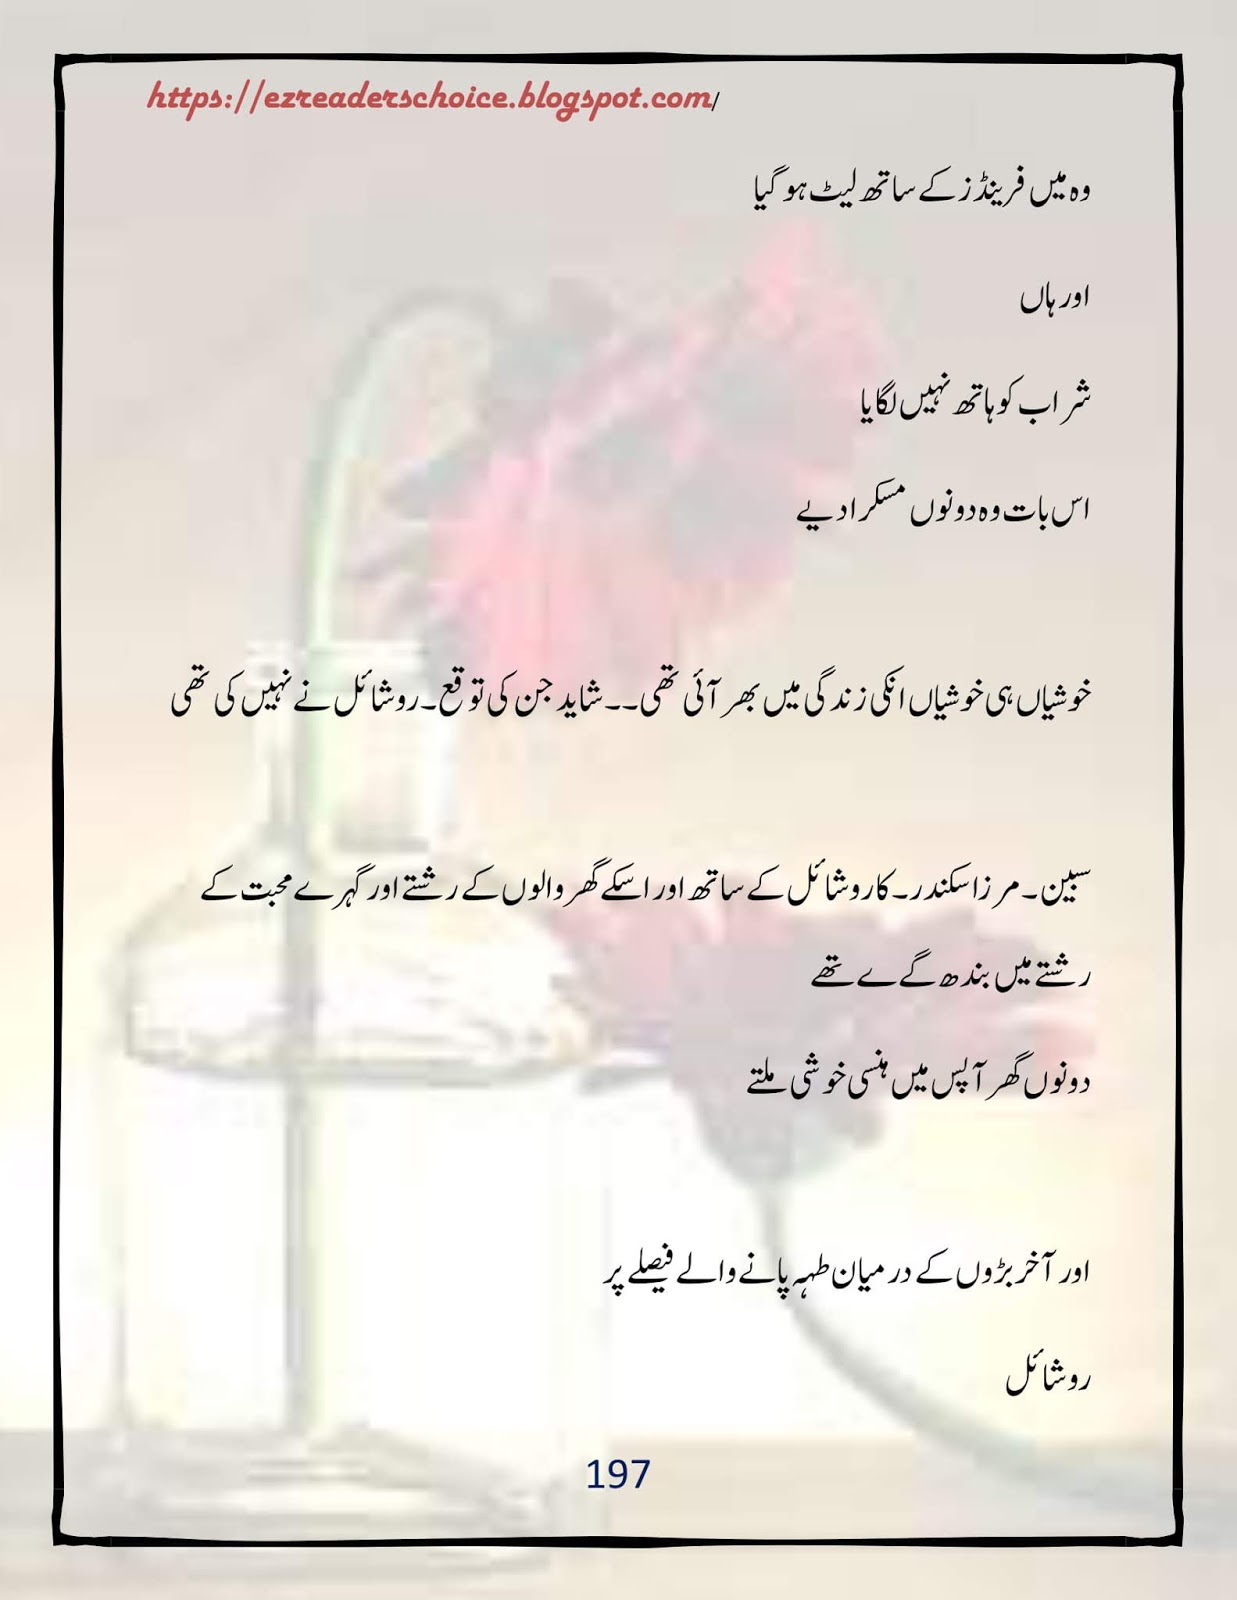 https://ezreaderschoice.blogspot.com/
وہ میں فرینڈز کے ساتھ لیٹ ہو گیا
اور ہاں
شراب کو ہاتھ نہیں لگایا
اس بات وہ دونوں مسکرا دیے
خوشیاں ہی خوشیاں انکی زندگی میں بھر آئی تھی۔۔شاید جن کی توقع۔روشائل نے نہیں کی تھی
سبین۔مرزا سکندر۔کا روشائل کے ساتھ اور اسکے گھر والوں کے رشتے اور گہرے محبت کے
رشتے میں بندھ گے ے تھے
دونوں گھر آپس میں ہنسی خوشی ملتے
اور آخر بڑوں کے درمیان طہہ پانے والے فیصلے پر
روشائل
197